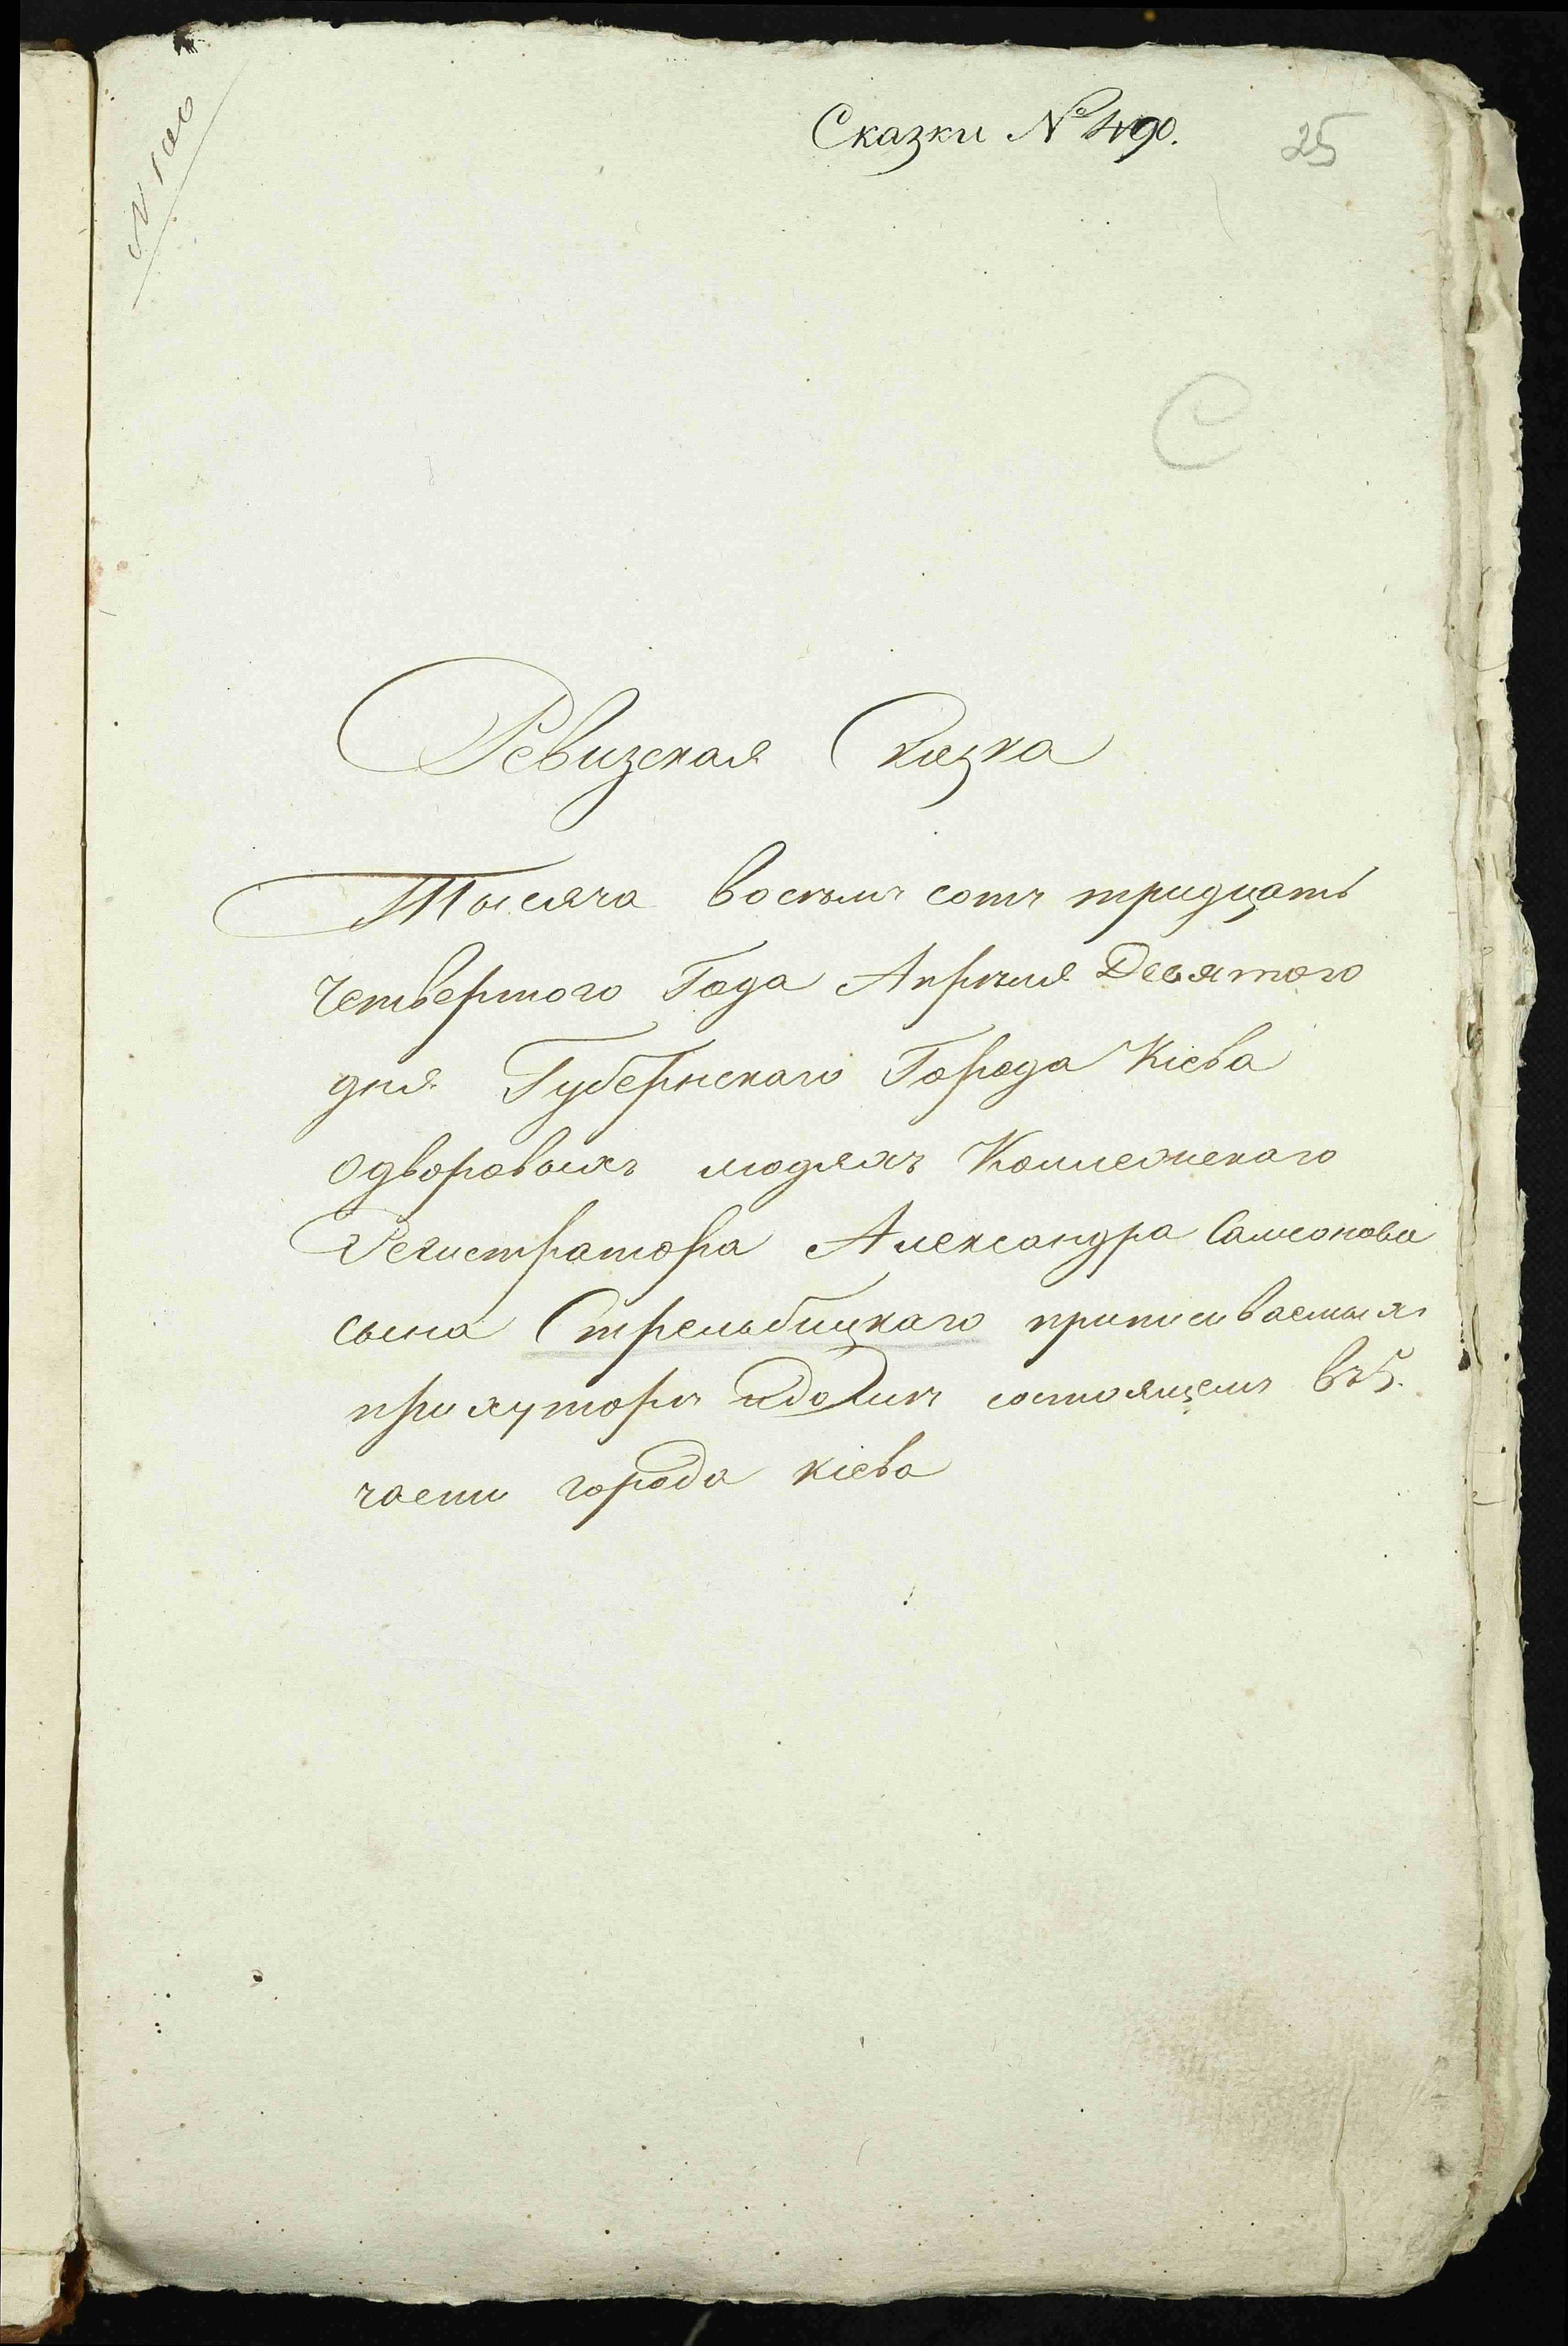 Сказки № 490.
25
С
Ревизская Сказка
Тысяча восемь сотъ тридцать
четвертого Года Апрѣля Десятого
дня Губернскаго Города Кіева
одворовыхъ людяхъ Коллежскаго
Регистратора Александра Самсонова
сына Стрельбицкаго приписываемыхъ
прихуторѣ идомѣ состоящемъ въ 5.
части города кіева